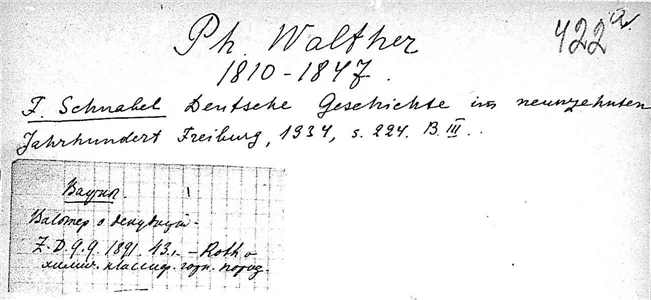 422 a.
Ph. Walther
1810-1847.
F. Schnabel Deutsche Geschichte im neunzehnten
Jahrhundert Freiburg, 1934, s. 224. B. III..
о денудации.
Z. D. g. g. 1891. 43. - Roth о
химич. классиф. горн. пород.